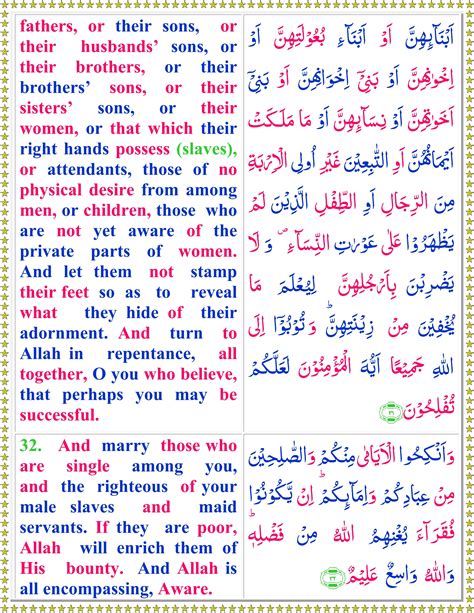 fathers, or their sons, or
their husbands’ sons, or
their brothers, or their
brothers’ sons, or their
sisters’ sons, or their
women, or that which their
right hands possess (slaves),
or attendants, those of no
physical desire from among
men, or children, those who
are not yet aware of the
private parts of women.
And let them not stamp
their feet so as to reveal
what they hide of their
adornment. And turn to
Allah in repentance, all
together, O you who believe,
that perhaps you may be
successful.
اَبْنَآىِٕهِنَّ اَوْ اَبْنَآءِ بُعُوْلَتِهِنَّ اَوْ
اِخْوَانِهِنَّ اَوْ بَنِيْۤ اِخْوَانِهِنَّ اَوْ بَنِيْۤ
اَخَوٰتِهِنَّ اَوْ نِسَآىِٕهِنَّ اَوْ مَا مَلَكَتْ
اَيْمَانُهُنَّ اَوِ التّٰبِعِيْنَ غَيْرِ اُولِي الْاِرْبَةِ
مِنَ الرِّجَالِ اَوِ الطِّفْلِ الَّذِيْنَ لَمْ
يَظْهَرُوْا عَلٰى عَوْرٰتِ النِّسَآءِ ۖ وَ لَا
يَضْرِبْنَ بِاَرْجُلِهِنَّ لِيُعْلَمَ مَا
يُخْفِيْنَ مِنْ زِيْنَتِهِنَّ ؕ وَ تُوْبُوْۤا اِلَى
اللّٰهِ جَمِيْعًا اَيُّهَ الْمُؤْمِنُوْنَ لَعَلَّكُمْ
تُفْلِحُوْنَ ﴿۳۱﴾
32. And marry those who
are single among you,
and the righteous of your
male slaves and maid
servants. If they are poor,
Allah will enrich them of
His bounty. And Allah is
all encompassing, Aware.
وَاَنْكِحُوا الْاَيَامٰى مِنْكُمْ وَالصّٰلِحِيْنَ
مِنْ عِبَادِكُمْ وَاِمَآىِٕكُمْ ؕ اِنْ يَّكُوْنُوْا
فُقَرَآءَ يُغْنِهِمُ اللّٰهُ مِنْ فَضْلِهٖ ؕ
وَاللّٰهُ وَاسِعٌ عَلِيْمٌ ﴿۳۲﴾